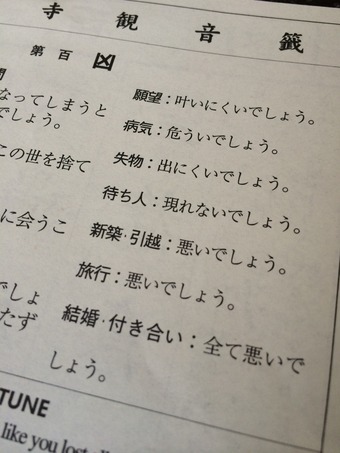 寺観音籤
第百 凶
願望：叶いにくいでしょう。
病気：危ういでしょう。
失物：出にくいでしょう。
待ち人：現れないでしょう。
新築・引越：悪いでしょう。
旅行：悪いでしょう。
結婚・付き合い：全て悪いで
しょう。
なってしまうと
でしょう。
この世を捨て
に会うこ
でしょ
たず
TUNE
like you lost